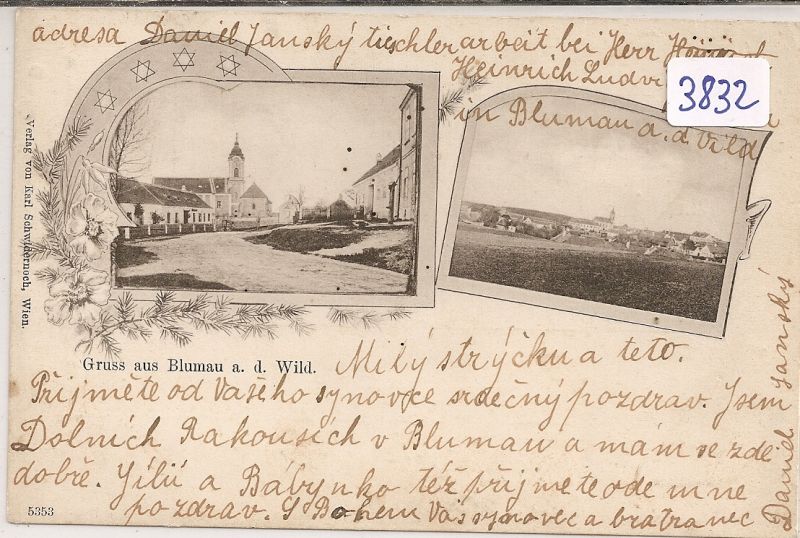 adresa Daniel Janský tischlerarbeit bei Herr
Heinrich Ludv
3832
in Blumau a. d. Vild
Verlag von Karl Schwidernoch, Wien.
Gruss aus Blumau a. d. Wild.
Milý strýčku a teto.
Přijměte od Vašeho synovce srdečný pozdrav. Jsem
Dolních Rakousích v Blumau a mám se zdě
dobře. Jílů a Bábynko též přijmete ode mne
pozdrav. S Bohem Vas synovec a bratranec
Daniel Janský
5353